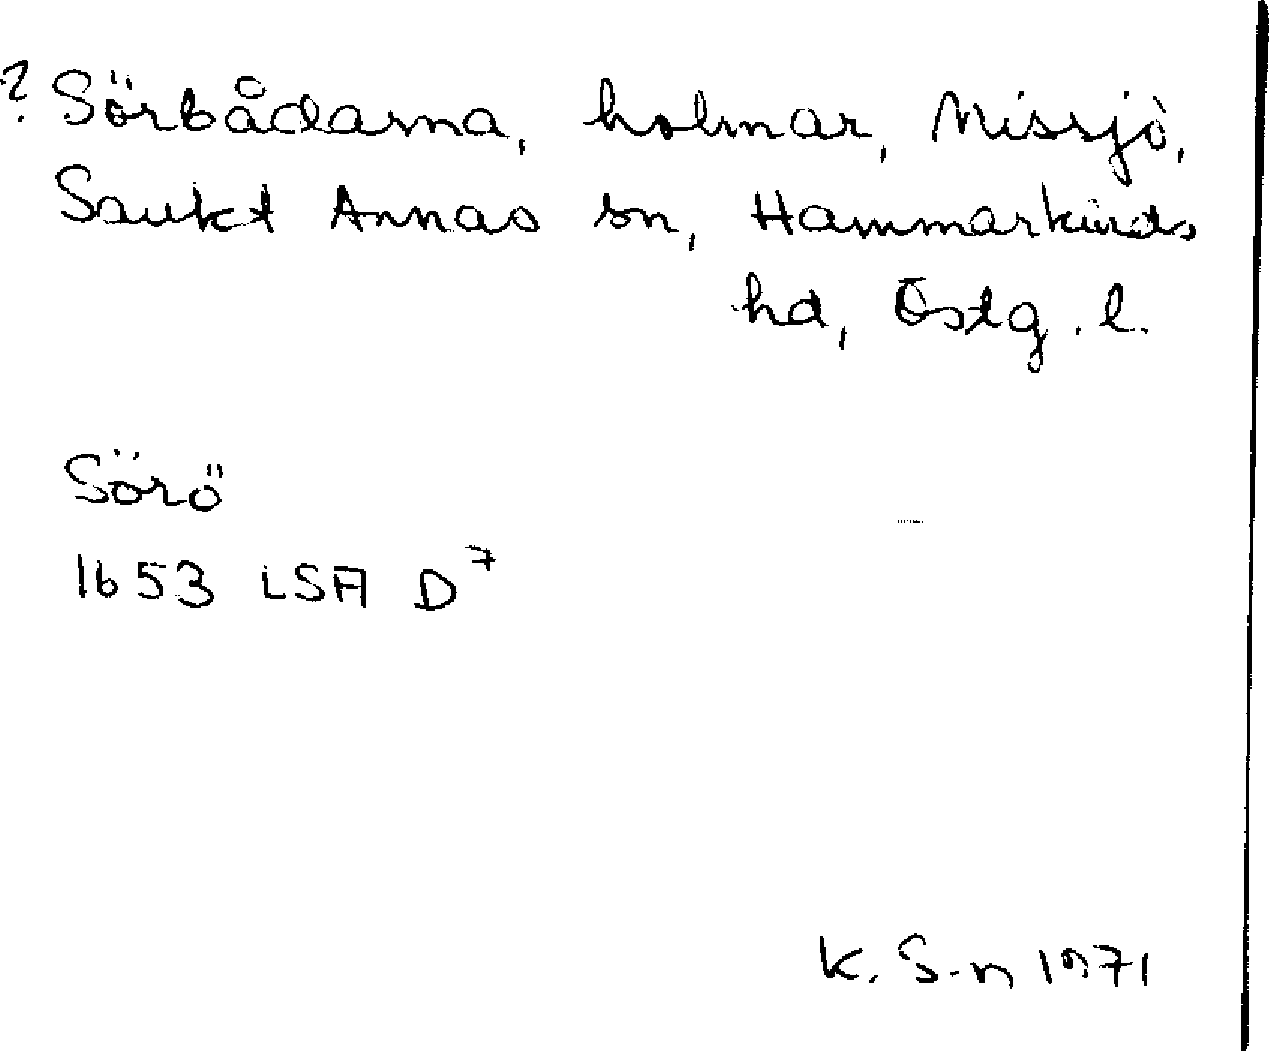 ? Sörbådarna, holmar, Missjö,
Sankt Annas sn, Hammarkinds
hd, Östg. l.
Sörö
1653 LSA D⁷
K. S-n 1971